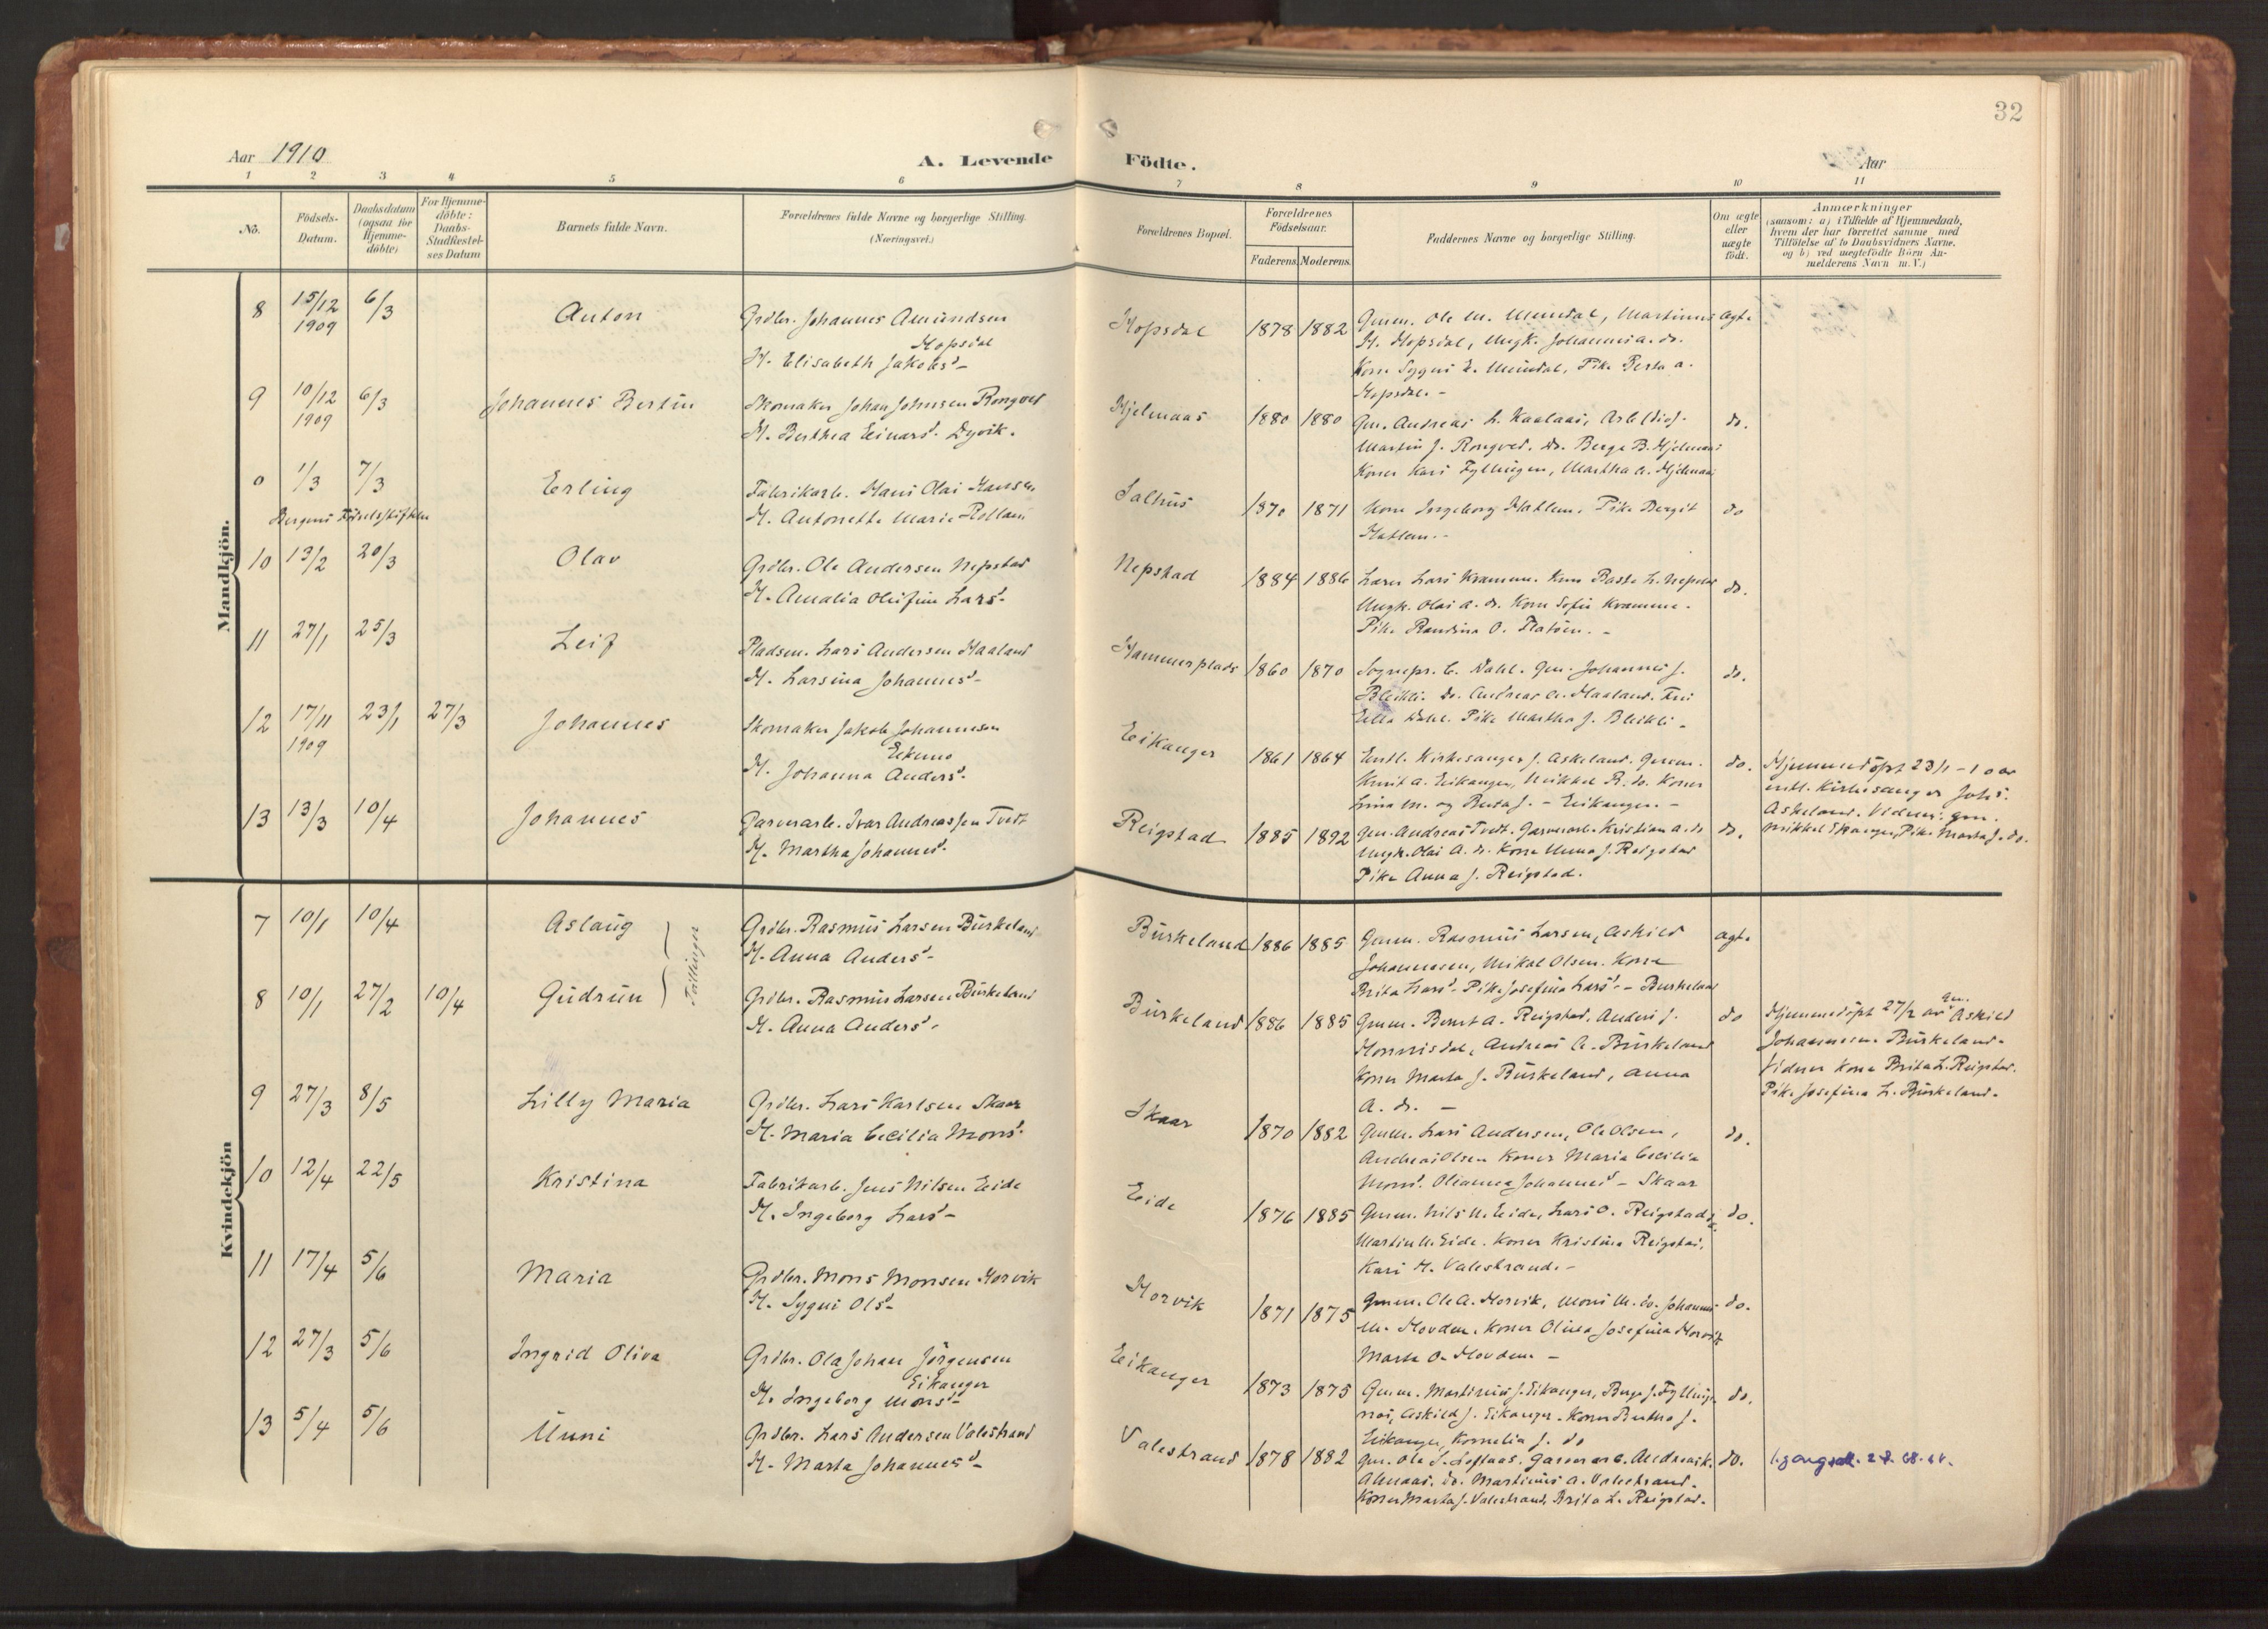 32
Aar 1910
A. Levende Födte.
Aar
1 2 3 4 5 6 7 8 9 10 11
No.
Födsels-Datum.
Daabsdatum (ogsaa for Hjemme-döbte)
For Hjemme-döbte: Daabs-Stadfæstel-ses Datum
Barnets fulde Navn.
Forældrenes fulde Navne og borgerlige Stilling.
(Næringsvei.)
Forældrenes Bopæl.
Forældrenes Födselsaar.
Faderens. Moderens.
Faddernes Navne og borgerlige Stilling.
Om ægte eller uægte födt.
Anmærkninger
(saasom: a) i Tilfælde af Hjemmedaab,
hvem der har forrettet samme med
Tilföielse af to Daabsvidners Navne.
og b) ved uægtefödte Börn An-
melderens Navn m. V.)
Mandkjön.
8 15/12 1909 6/3 Anton
Grdbr. Johannes Amundsen
Hopsdal
H. Elisabeth Jakobsd-
Hopsdal 1878 1882
Gmm. Ole M. Mundal, Martinus
H. Hopsdal, Ungk. Johannes A. do.
Kone Sygni E. Mundal, Pike Berta A.
Hopsdal. -
ægte
9 10/12 1909 6/3 Johannes Bertin
Skomaker Johan Johnsen Rongved
H. Berthea Einarsd. Dyvik.
Hjelmaas 1880 1880
Gm. Andreas L. Kaalaas,
Martin J. Rongved. do. Berge B. Hjelmaas
Koner Kari Fyllingen, Martha A. Hjelmaas
do.
0 1/3 7/3 Erling
Bergens Fødselsstiftelse
Fabrikarb. Hans Olai Hansen
H. Antonette Marie
Salhus 1870 1871
Kone Ingeborg Hatlem. Pike Bergit
Hatlem. -
do
10 13/2 20/3 Olav
Grdbr. Ole Andersen Nepstad
H. Amalia Olufine Larsd-
Nepstad 1884 1886
Lærer Lars Kramme. Kone Basta L. Nepstad
Ungk. Olai A. do. Kone Sofie Kramme.
Pike Randina O. Flatöen. -
do.
11 27/1 25/3 Leif
Pladsm. Lars Andersen Haaland
H. Larsina Johannesd-
Hammerplads 1860 1870
Sognepr. C. Dahl. Gm. Johannes J.
Bleikli. do. Andreas A. Haaland. Fru
Ella Dahl. Pike Martha J. Bleikli -
do.
12 17/11 1909 23/1 27/3 Johannes
Skomaker Jakob Johannesen
Ekemo
H. Johanna Andersd.
Eikanger 1861 1864
Entl. Kirkesanger J. Askeland. Gmm.
Knut A. Eikanger, Mikkel R. do. Koner
Lina M. og Berta J. - Eikanger. -
do.
Hjemmedöpt 23/1 - 10 av
entl. Kirkesanger Johs.
Askeland. Vidner: gm.
Mikkel Eikanger, Pike Marta J. do.
13 13/3 10/4 Johannes
Garverarb. Ivar Andreassen Tvedt
H. Martha Johannesd.
Reigstad 1885 1892
Gm. Andreas Tvedt. Garverarb. Kristian A. do
Ungk. Olai A. do. Kone Unna J. Reigstad
Pike Anna J. Reigstad.
do.
Kvindekjön
7 10/1 10/4 Aslaug
Tvillinger
Grdbr. Rasmus Larsen Burkeland
H. Anna Andersd-
Burkeland 1886 1885
Gmm. Rasmus Larsen, Askild
Johannesen, Mikal Olsen. Kone
Brita Larsd- Pike Josefina Larsd. - Burkeland
ægte
8 10/1 27/2 10/4 Gudrun
Grdbr. Rasmus Larsen Burkeland
H. Anna Andersd.
Burkeland 1886 1885
Gmm. Bernt A. Reigstad, Anders J.
Monnisdal, Andreas A. Burkeland
Koner Marta J. Burkeland, Anna
A. do. -
do
Hjemmedöpt 27/2 av gm. Askild
Johannesen Burkeland.
Vidner Kone Brita L. Reigstad.
Pike Josefina L. Burkeland.
9 27/3 8/5 Lilly Maria
Grdbr. Lars Karlsen Skaar
H. Maria Cecilia Monsd.
Skaar 1870 1882
Gmm. Lars Andersen, Ole Olsen,
Andreas Olsen Koner Maria Cecilia
Monsd. Oleanna Johannesd - Skaar
do.
10 12/4 22/5 Kristina
Fabrikarb. Jens Nilsen Eide
H. Ingeborg Larsd-
Eide 1876 1885
Gmm. Nils N. Eide, Lars O. Reigstad,
Martin N. Eide. Koner Kristina Reigstad,
Kari H. Valestrand. -
do.
11 17/4 5/6 Maria
Grdbr. Mons Monsen Horvik
H. Sygni Olsd-
Horvik 1871 1875
Gmm. Ole A. Horvik, Mons M. do. Johannes
M. Hovden. Koner Olina Josefina Horvik
Marta O. Hovden. -
do.
12 27/3 5/6 Ingrid Oliva
Grdbr. Ola Johan Jörgensen
Eikanger
H. Ingeborg Monsd-
Eikanger 1873 1875
Gmm. Martinus J. Eikanger, Berge J. Fyllings-
nes, Askild J. Eikanger. Koner Bertha J.
Eikanger, Kornelia J. do
do.
13 5/4 5/6 Unni
Grdbr. Lars Andersen Valestrand
H. Marta Johannesd-
Valestrand 1878 1882
Gm. Ole S. Loftaas. Garverarb. Andreas K.
Almaas. do. Martinus A. Valestrand.
Koner Marta J. Valestrand, Brita L. Reigstad.
do.